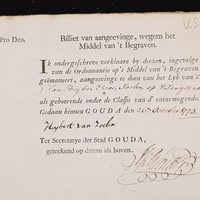 V.S.
Pro Deo.
Billiet van aangeevinge, wegens het
Middel van 't Begraven.
IK ondergeschreve verklaare by deezen, ingevolge
van de Ordonnantie op 't Middel van 't Begraven
geëmaneert, aangeeving te doen van het Lyk van
van Huybert van
als gehoorende onder de Classis van d' onvermogende.
Gedaan binnen GOUDA den 26 October 1773.
Huybert van
Ter Secretarye der Stad GOUDA,
geteekend op datum als boven.